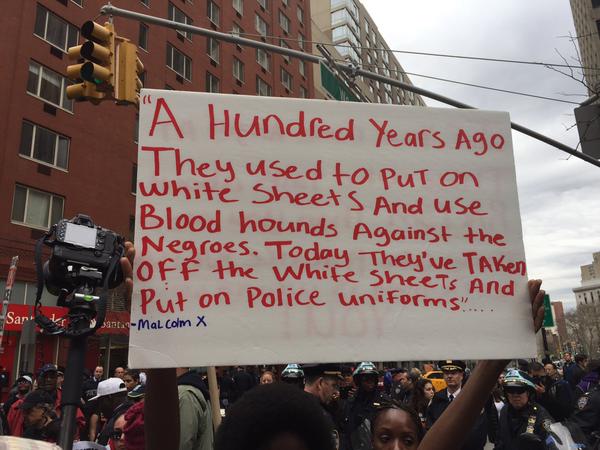 "A Hundred Years Ago
They used to Put on
White Sheets And use
Blood hounds Against the
Negroes. Today They've TAKen
Off the White Sheets And
Put on Police uniforms".....
-MaLcolm X